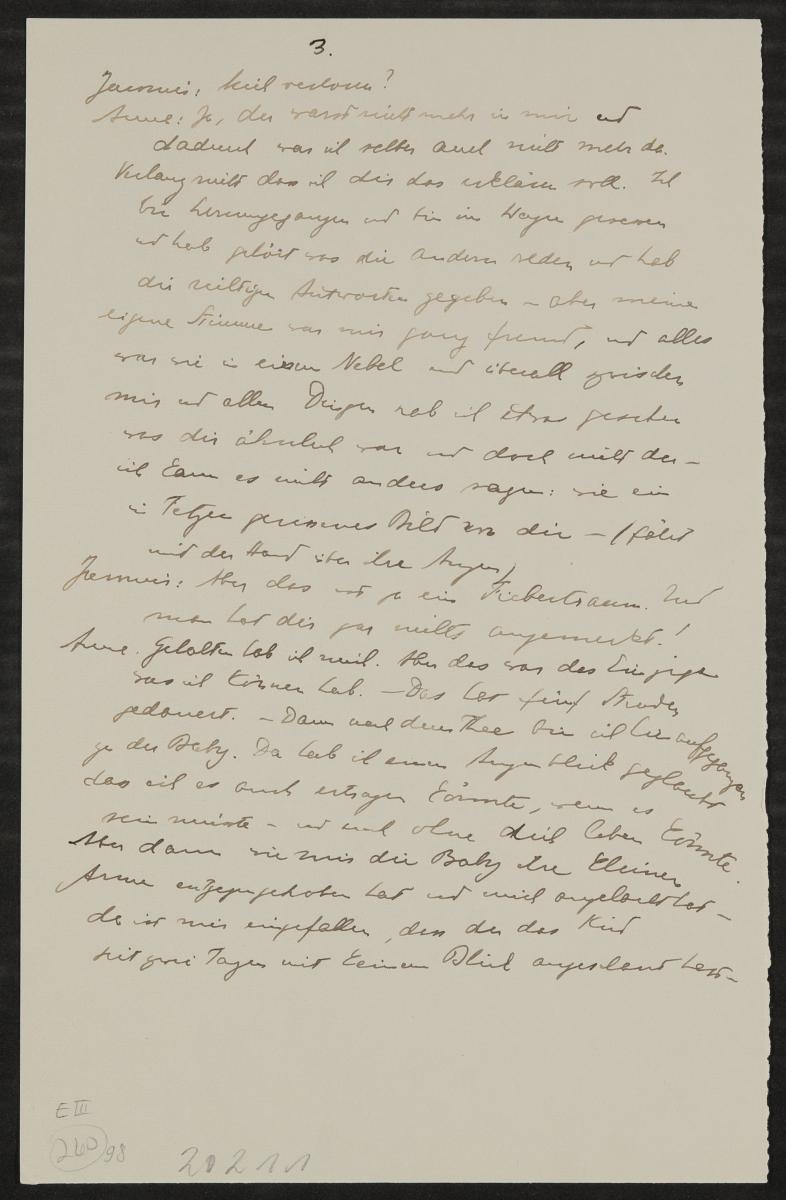 3.
Jaromir: mich verloren?
Anna: Ja, du warst nicht mehr in mir und
dadurch war ich selber auch nicht mehr da.
Verlang nicht dass ich dir das erklären soll. Ich
bin herumgegangen und bin im Wagen gesessen
und hab gehört was die andern reden und hab
die richtigen Antworten gegeben – aber meine
eigene Stimme war mir ganz fremd, und alles
war wie in einem Nebel und überall zwischen
mir und allen Dingen hab ich etwas gesehen
was dir ähnlich war und doch nicht du –
ich kann es nicht anders sagen: wie ein
in Fetzen gerissenes Bild von dir – (fährt
mit der Hand über ihre Augen)
Jaromir: Aber das ist ja ein Fiebertraum. Und
man hat dir gar nichts angemerkt!
Anna. Gehalten hab ich mich. Aber das war das Einzige
was ich können hab. – Das hat fünf Stunden
gedauert. – Dann nach dem Thee bin ich hinaufgegangen
zu der Baby. Da hab ich einen Augenblick geglaubt
dass ich es auch ertragen könnte, wenn es
sein müsste – und auch ohne dich leben könnte.
Aber dann wie mir die Baby ihre kleinen
Arme entgegengehoben hat und mich angelacht hat –
da ist mir eingefallen, dass du das Kind
seit zwei Tagen mit keinem Blick angeschaut hast –
E III
260
98
20211